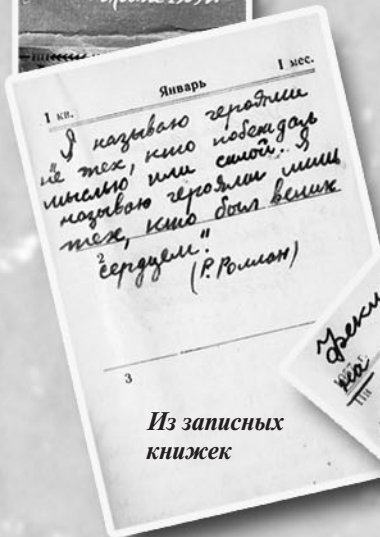 1 кв.
Январь
1 мес.
„Я называю героями
не тех, кто побеждал
мыслью или силой. Я
называю героями лишь
тех, кто был велик
2
сердцем."
(Р. Роллан)
3
Из записных
книжек